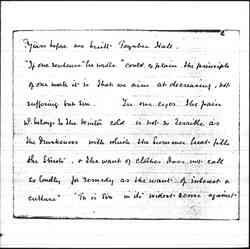 Years before we built Toynbee Hall.
"If one sentence" he wrote "could explain the principle
of our work it is that we aim at decreasing, not
suffering but sin. In our eyes the pain
wh. belongs to the Winter cold is not so terrible as
the Drunkenness with which the Summer heat fills
the Streets, & the want of clothes does not call
so loudly for remedy as the want of interest &
culture" in its widest sense against